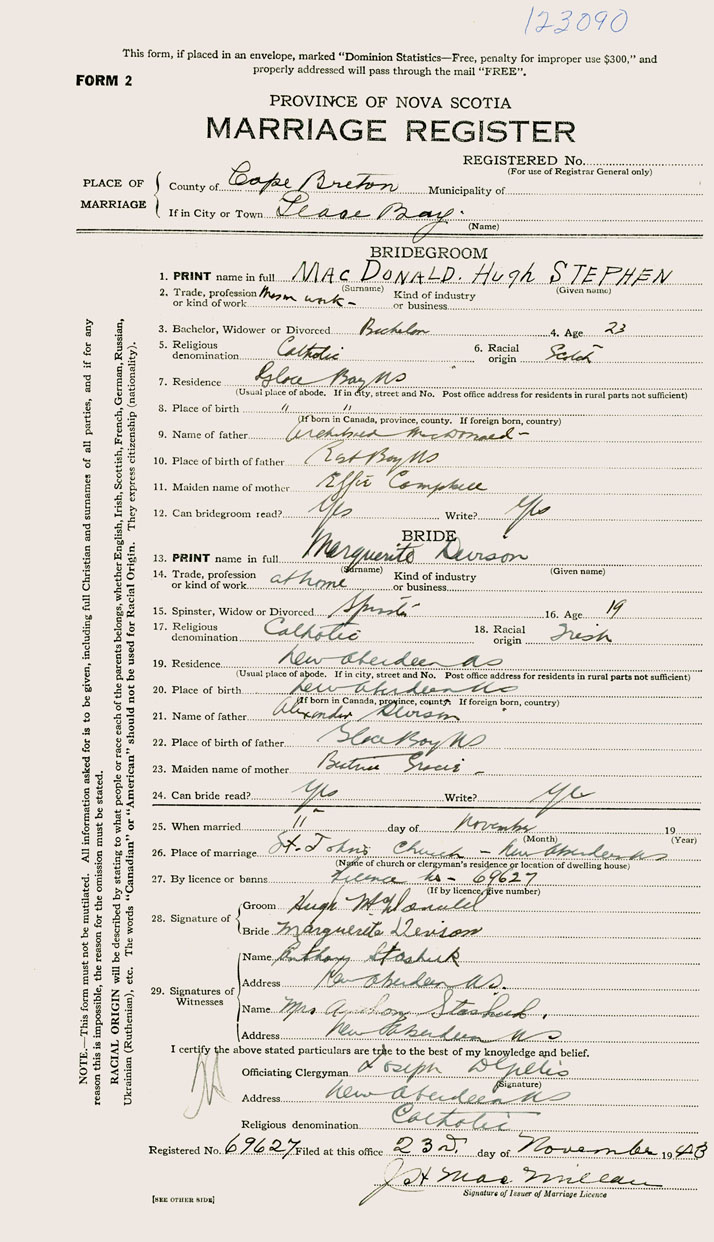 123090
This form, if placed in an envelope, marked “Dominion Statistics—Free, penalty for improper use $300,” and
properly addressed will pass through the mail “FREE”.
FORM 2
PROVINCE OF NOVA SCOTIA
MARRIAGE REGISTER
REGISTERED No.
(For use of Registrar General only)
PLACE OF MARRIAGE
County of Cape Breton Municipality of
If in City or Town Bay.
(Name)
BRIDEGROOM
1. PRINT name in full MAC DONALD. Hugh STEPHEN
(Surname) (Given name)
2. Trade, profession or kind of work work - Kind of industry or business
3. Bachelor, Widower or Divorced Bachelor 4. Age 23
5. Religious denomination Catholic 6. Racial origin Scotch
7. Residence Glace Bay NS
(Usual place of abode. If in city, street and No. Post office address for residents in rural parts not sufficient)
8. Place of birth " "
(If born in Canada, province, county. If foreign born, country)
9. Name of father Archibald McDonald -
10. Place of birth of father East Bay NS
11. Maiden name of mother Effie Campbell
12. Can bridegroom read? Yes Write? Yes
BRIDE
13. PRINT name in full Marguerite Devison
(Surname) (Given name)
14. Trade, profession or kind of work at home Kind of industry or business
15. Spinster, Widow or Divorced Spinster 16. Age 19
17. Religious denomination Catholic 18. Racial origin Irish
19. Residence New Aberdeen NS
(Usual place of abode. If in city, street and No. Post office address for residents in rural parts not sufficient)
20. Place of birth New Aberdeen NS
(If born in Canada, province, county. If foreign born, country)
21. Name of father Alexander Devison
22. Place of birth of father Glace Bay NS
23. Maiden name of mother
24. Can bride read? Yes Write? Yes
25. When married 11 day of November 19
(Month) (Year)
26. Place of marriage St. Johns Church - New Aberdeen NS
(Name of church or clergyman's residence or location of dwelling house)
27. By licence or banns Licence No - 69627
(If by licence, give number)
28. Signature of
Groom Hugh McDonald
Bride Marguerite Devison
29. Signatures of Witnesses
Name Anthony Stashuk
Address New Aberdeen NS.
Name Mrs Stashuk.
Address New Aberdeen NS
I certify the above stated particulars are true to the best of my knowledge and belief.
Officiating Clergyman Joseph
(Signature)
Address New Aberdeen NS
Religious denomination Catholic
Registered No. 69627 Filed at this office 23rd. day of November 1943
Signature of Issuer of Marriage Licence
[SEE OTHER SIDE]
NOTE.—This form must not be mutilated. All information asked for is to be given, including full Christian and surnames of all parties, and if for any
reason this is impossible, the reason for the omission must be stated.
RACIAL ORIGIN will be described by stating to what people or race each of the parents belongs, whether English, Irish, Scottish, French, German, Russian,
Ukrainian (Ruthenian), etc. The words “Canadian” or “American” should not be used for Racial Origin. They express citizenship (nationality).